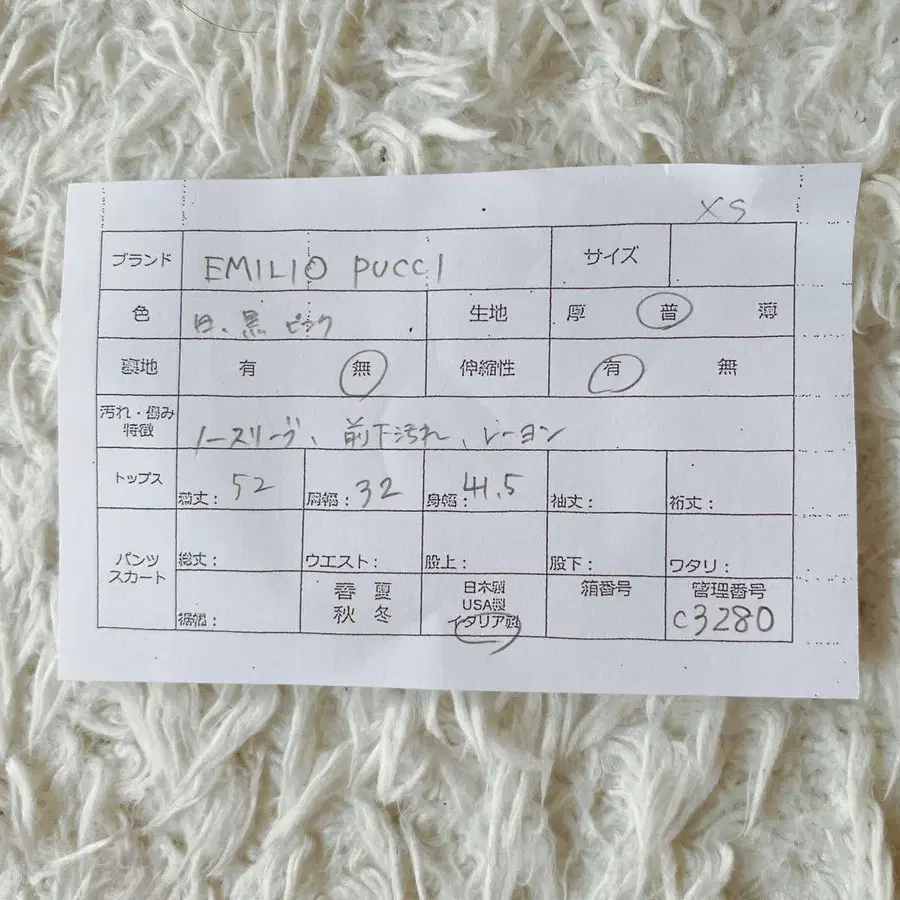 XS
ブランド EMILIO PUCCI サイズ
色 白、黒 ピンク 生地 厚 普 薄
裏地 有 無 伸縮性 有 無
汚れ・傷み
特徴 ノースリーブ、前下汚れ、レーヨン
トップス 着丈: 52 肩幅: 32 身幅: 41.5 袖丈: 裄丈:
パンツ
スカート 総丈: ウエスト: 股上: 股下: ワタリ:
裾幅: 春 夏
秋 冬 日本製
USA製
イタリア製 箱番号 管理番号
C3280